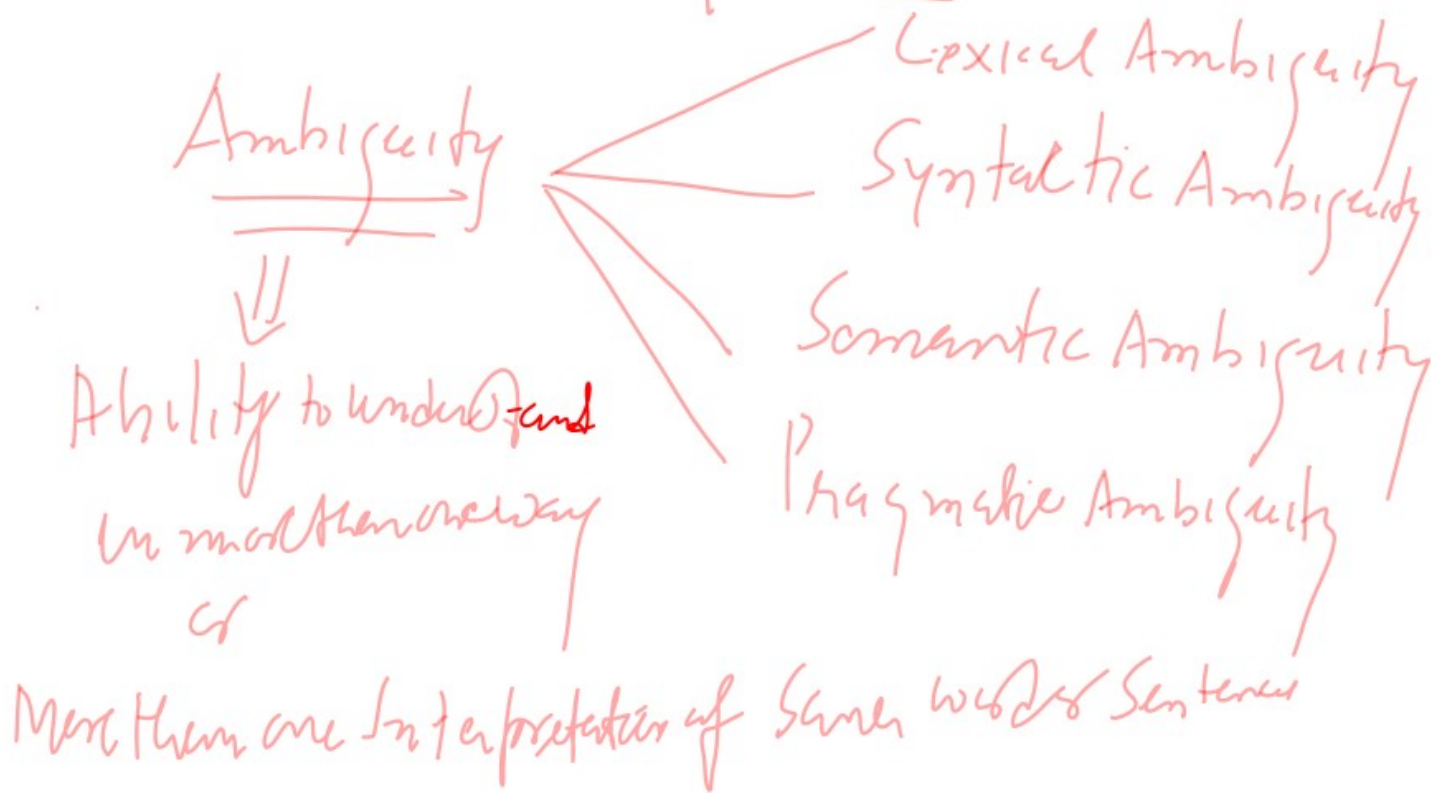 Ambiguity
Lexical Ambiguity
Syntactic Ambiguity
Semantic Ambiguity
Pragmatic Ambiguity
Ability to understand
in more than one way
or
More than one Interpretation of Same word or Sentence